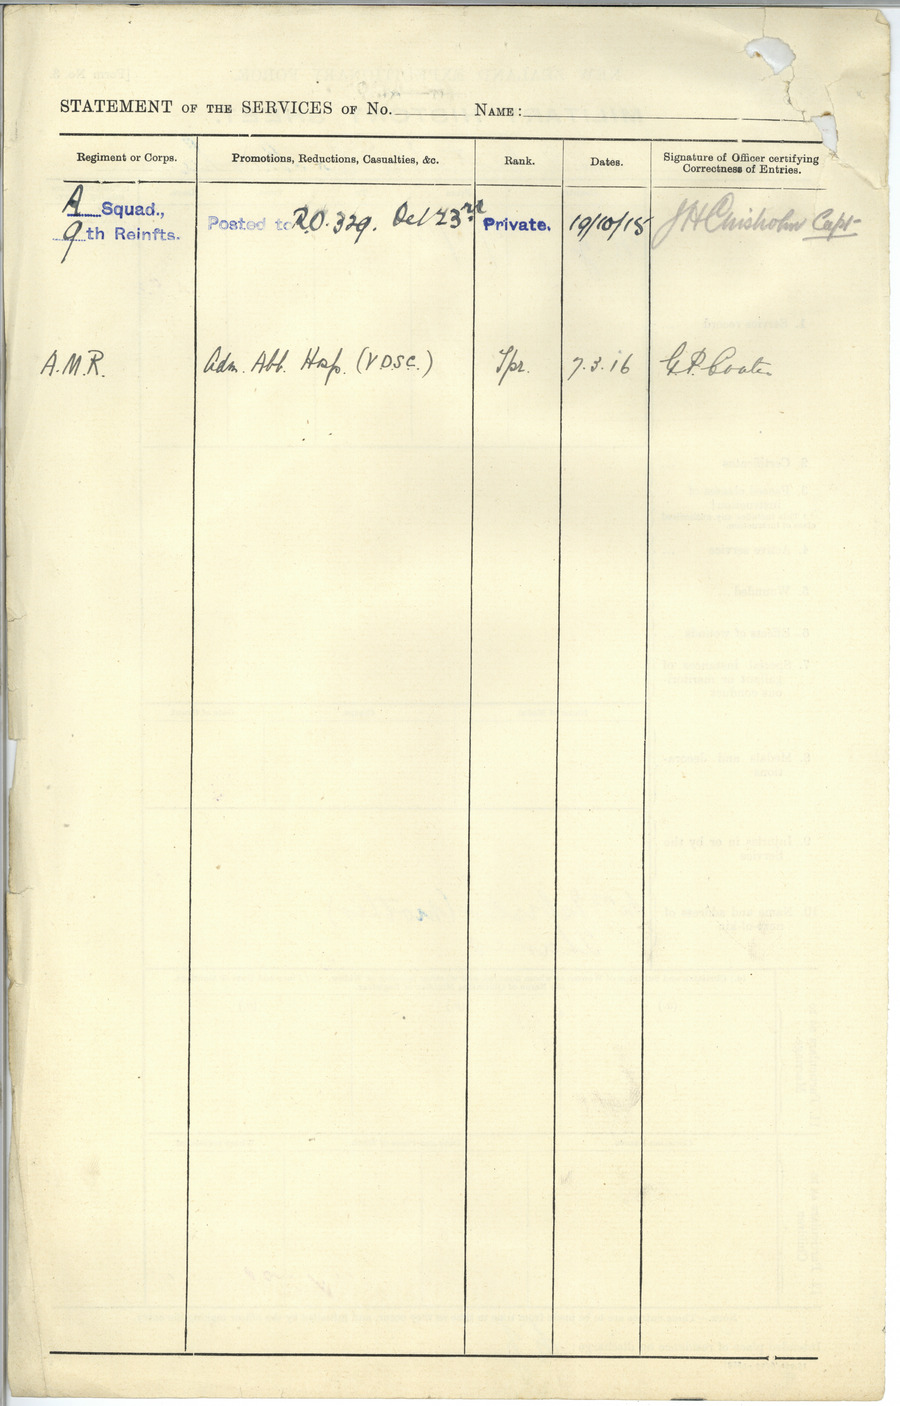 STATEMENT OF THE SERVICES OF No. NAME:
Regiment or Corps. Promotions, Reductions, Casualties, &c. Rank. Dates. Signature of Officer certifying Correctness of Entries.
A Squad.,
9th Reinfts. Posted to R.O. 329. Oct 23rd Private. 19/10/15 J H Chisholm Capt
A.M.R. Adm. Abb. Hosp. (V.D.S.C.) Tpr. 7.3.16 G P Coates